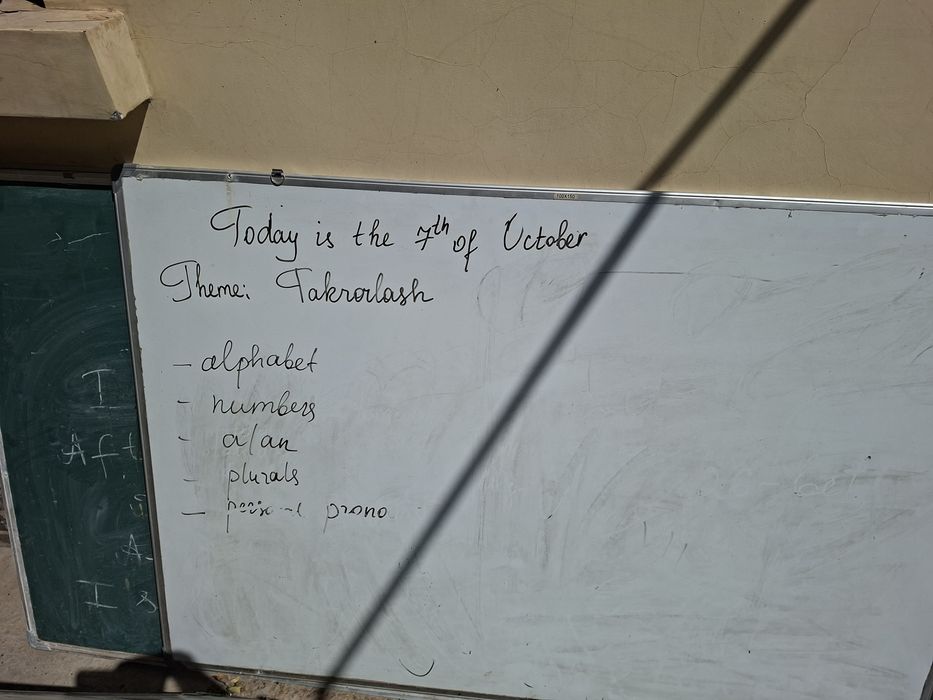 Today is the 7th of October
Theme: Takrorlash
- alphabet
- numbers
- a/an
- plurals
- prono
100X150